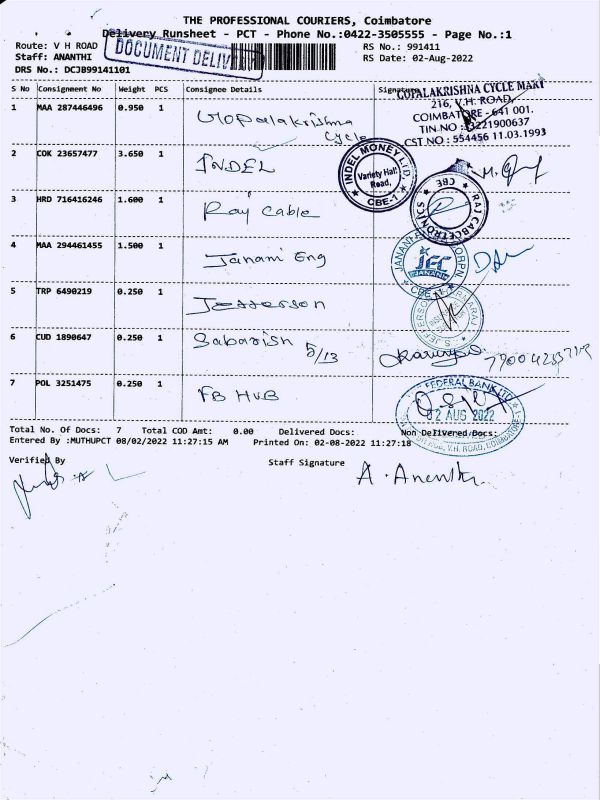 THE PROFESSIONAL COURIERS, Coimbatore
Delivery Runsheet - PCT - Phone No.:0422-3505555 - Page No.:1
Route: V H ROAD
RS No.: 991411
Staff: ANANTHI
RS Date: 02-Aug-2022
DRS No.: DCJB99141101
S No Consignment No Weight PCS Consignee Details Signature
GOPALAKRISHNA CYCLE MART
216, V.H. ROAD,
COIMBATORE - 641 001.
TIN NO : 3221900637
CST NO : 554456 11.03.1993
1 MAA 287446496 0.950 1 Gopalakrishna
Cycle
2 COK 23657477 3.650 1 INDEL
INDEL MONEY LTD
Variety Hall
Road,
CBE-1
3 HRD 716416246 1.600 1 Raj Cable
CBE
4 MAA 294461455 1.500 1 Janani Eng
JEC
JANANI
5 TRP 6490219 0.250 1 Jefferson
6 CUD 1890647 0.250 1 Sabarish 5/13
7 POL 3251475 0.250 1 FB HUB
FEDERAL BANK LTD
02 AUG 2022
V.H. ROAD, COIMBATORE
Total No. Of Docs: 7 Total COD Amt: 0.00 Delivered Docs: Non Delivered Docs:
Entered By :MUTHUPCT 08/02/2022 11:27:15 AM Printed On: 02-08-2022 11:27:18
Verified By Staff Signature